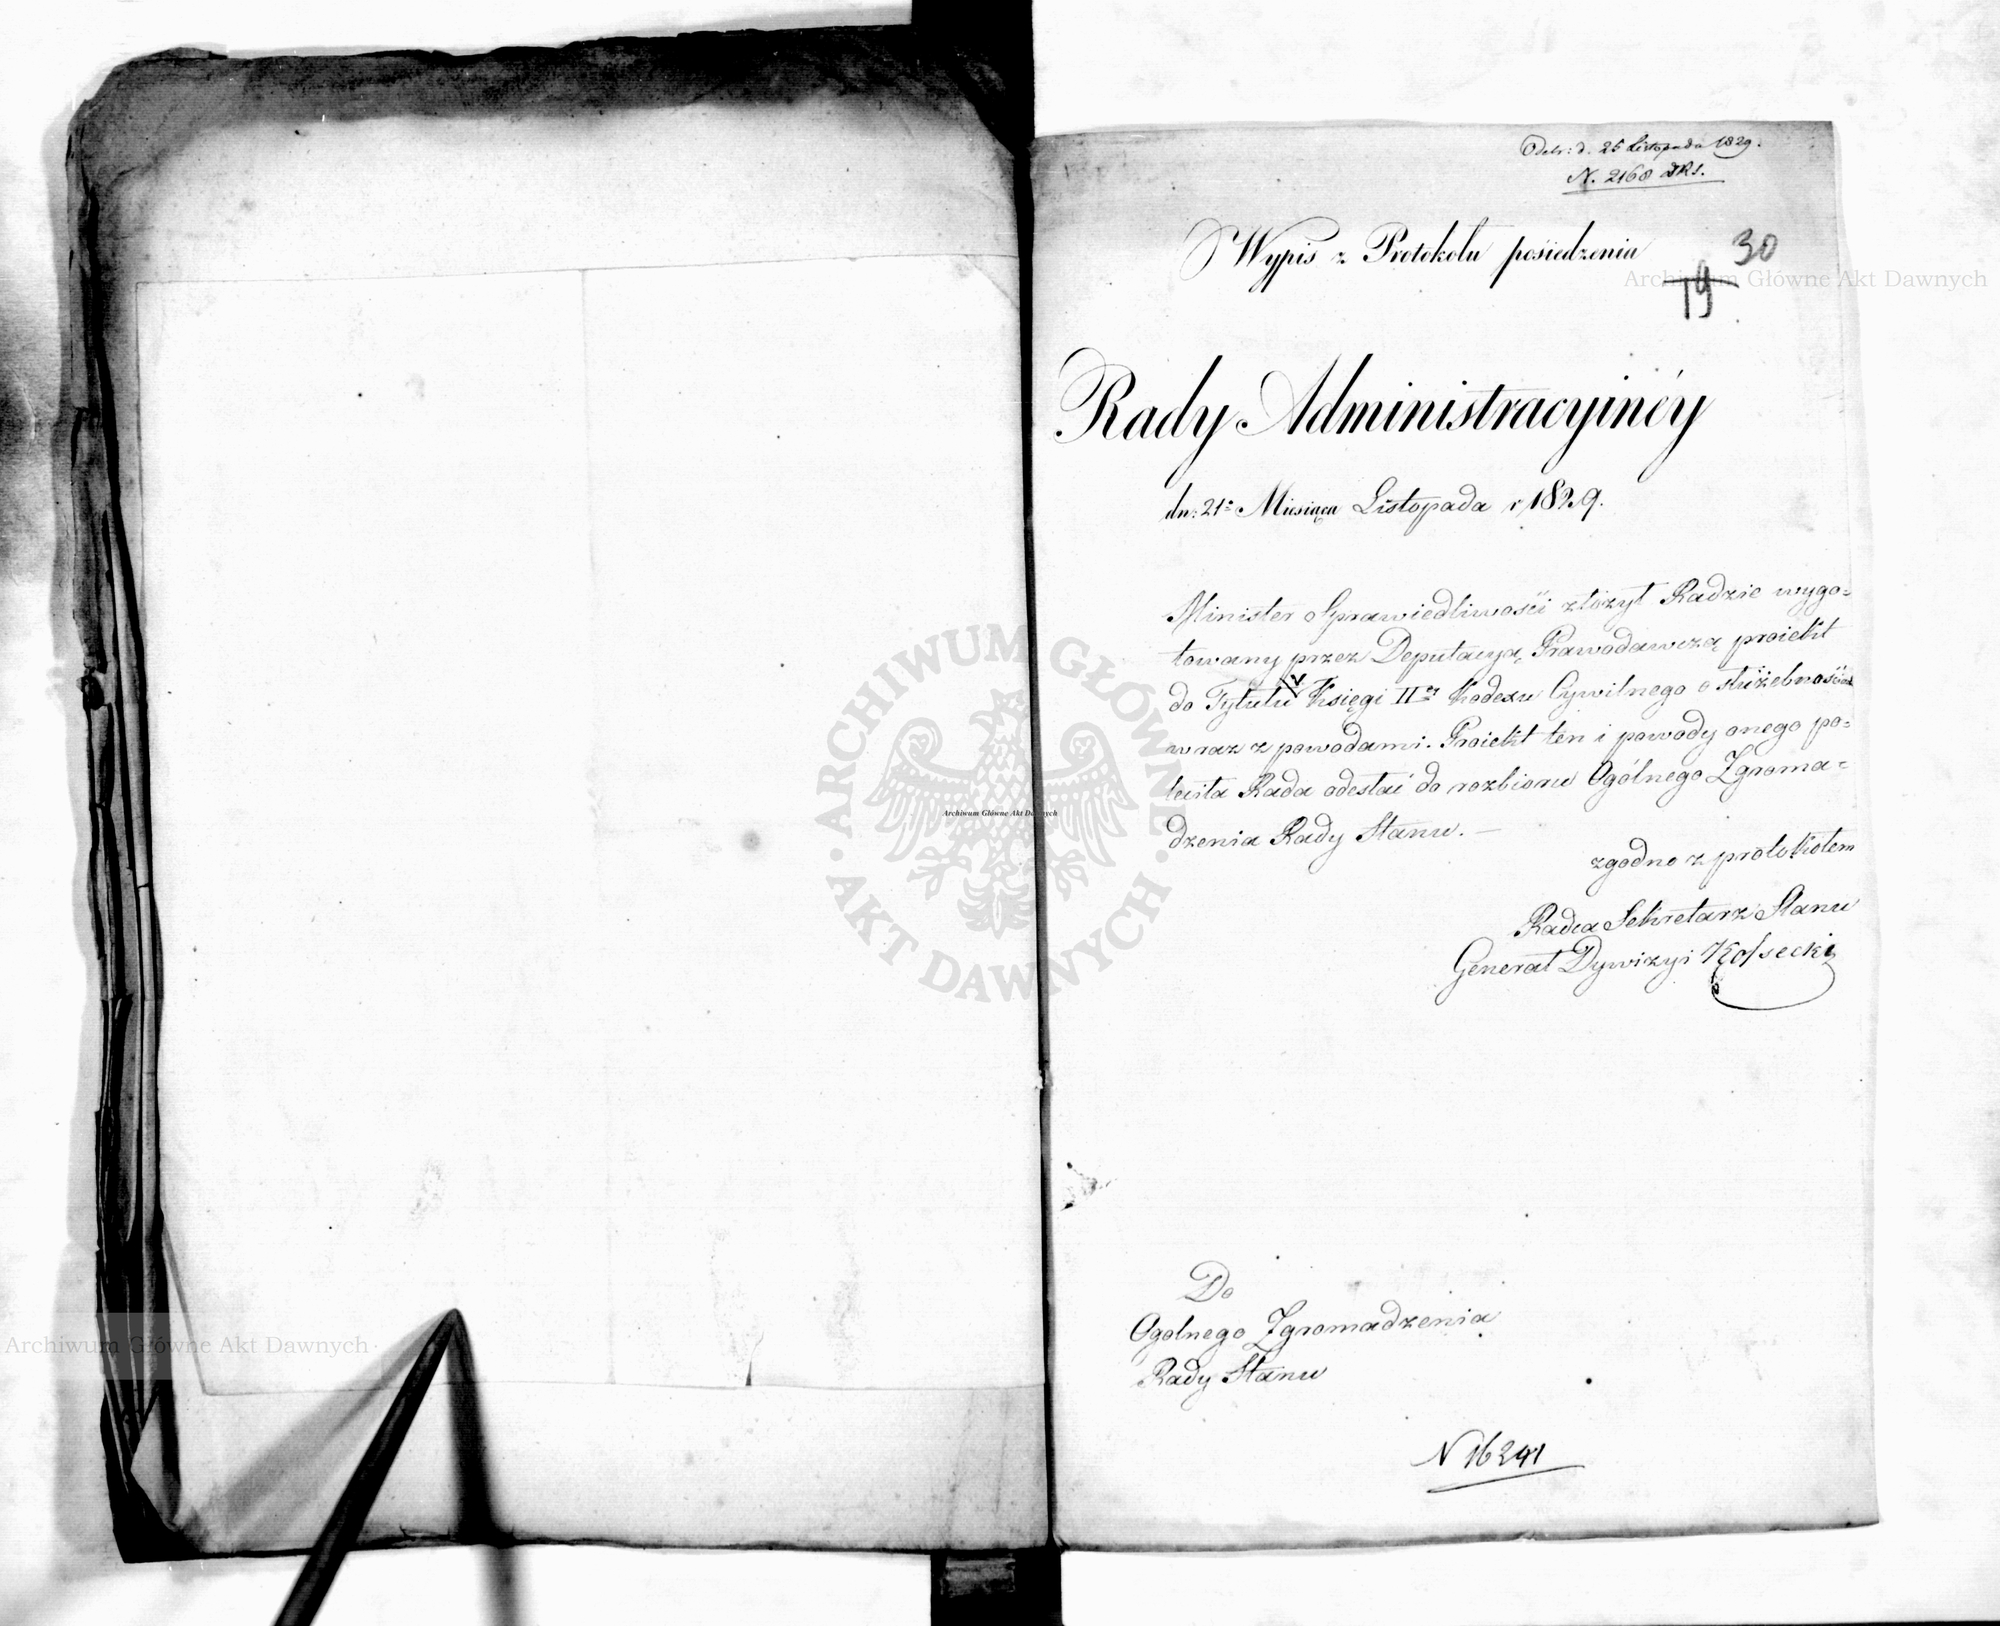 Odebr: d. 25 Listopada 1829.
N. 2168 DRS.
Wypis z Protokołu posiedzenia
30
19
Archiwum Główne Akt Dawnych
Rady Administracyinéy
dn: 21º Miesiąca Listopada r 1829.
Minister Sprawiedliwości złożył Radzie wygo=
towany przez Deputacyą Prawodawczą proiekt
do Tytułu V Księgi IIéy Kodexu Cywilnego o służebnościach
wraz z powodami. Proiekt ten i powody onego po=
leciła Rada odesłać do rozbioru Ogólnego Zgroma=
dzenia Rady Stanu. —
zgodno z protokołem
Radca Sekretarz Stanu
Generał Dywizyi Kossecki
ARCHIWUM GŁÓWNE
AKT DAWNYCH
Archiwum Główne Akt Dawnych
Do
Ogolnego Zgromadzenia
Rady Stanu
Archiwum Główne Akt Dawnych
N 16241